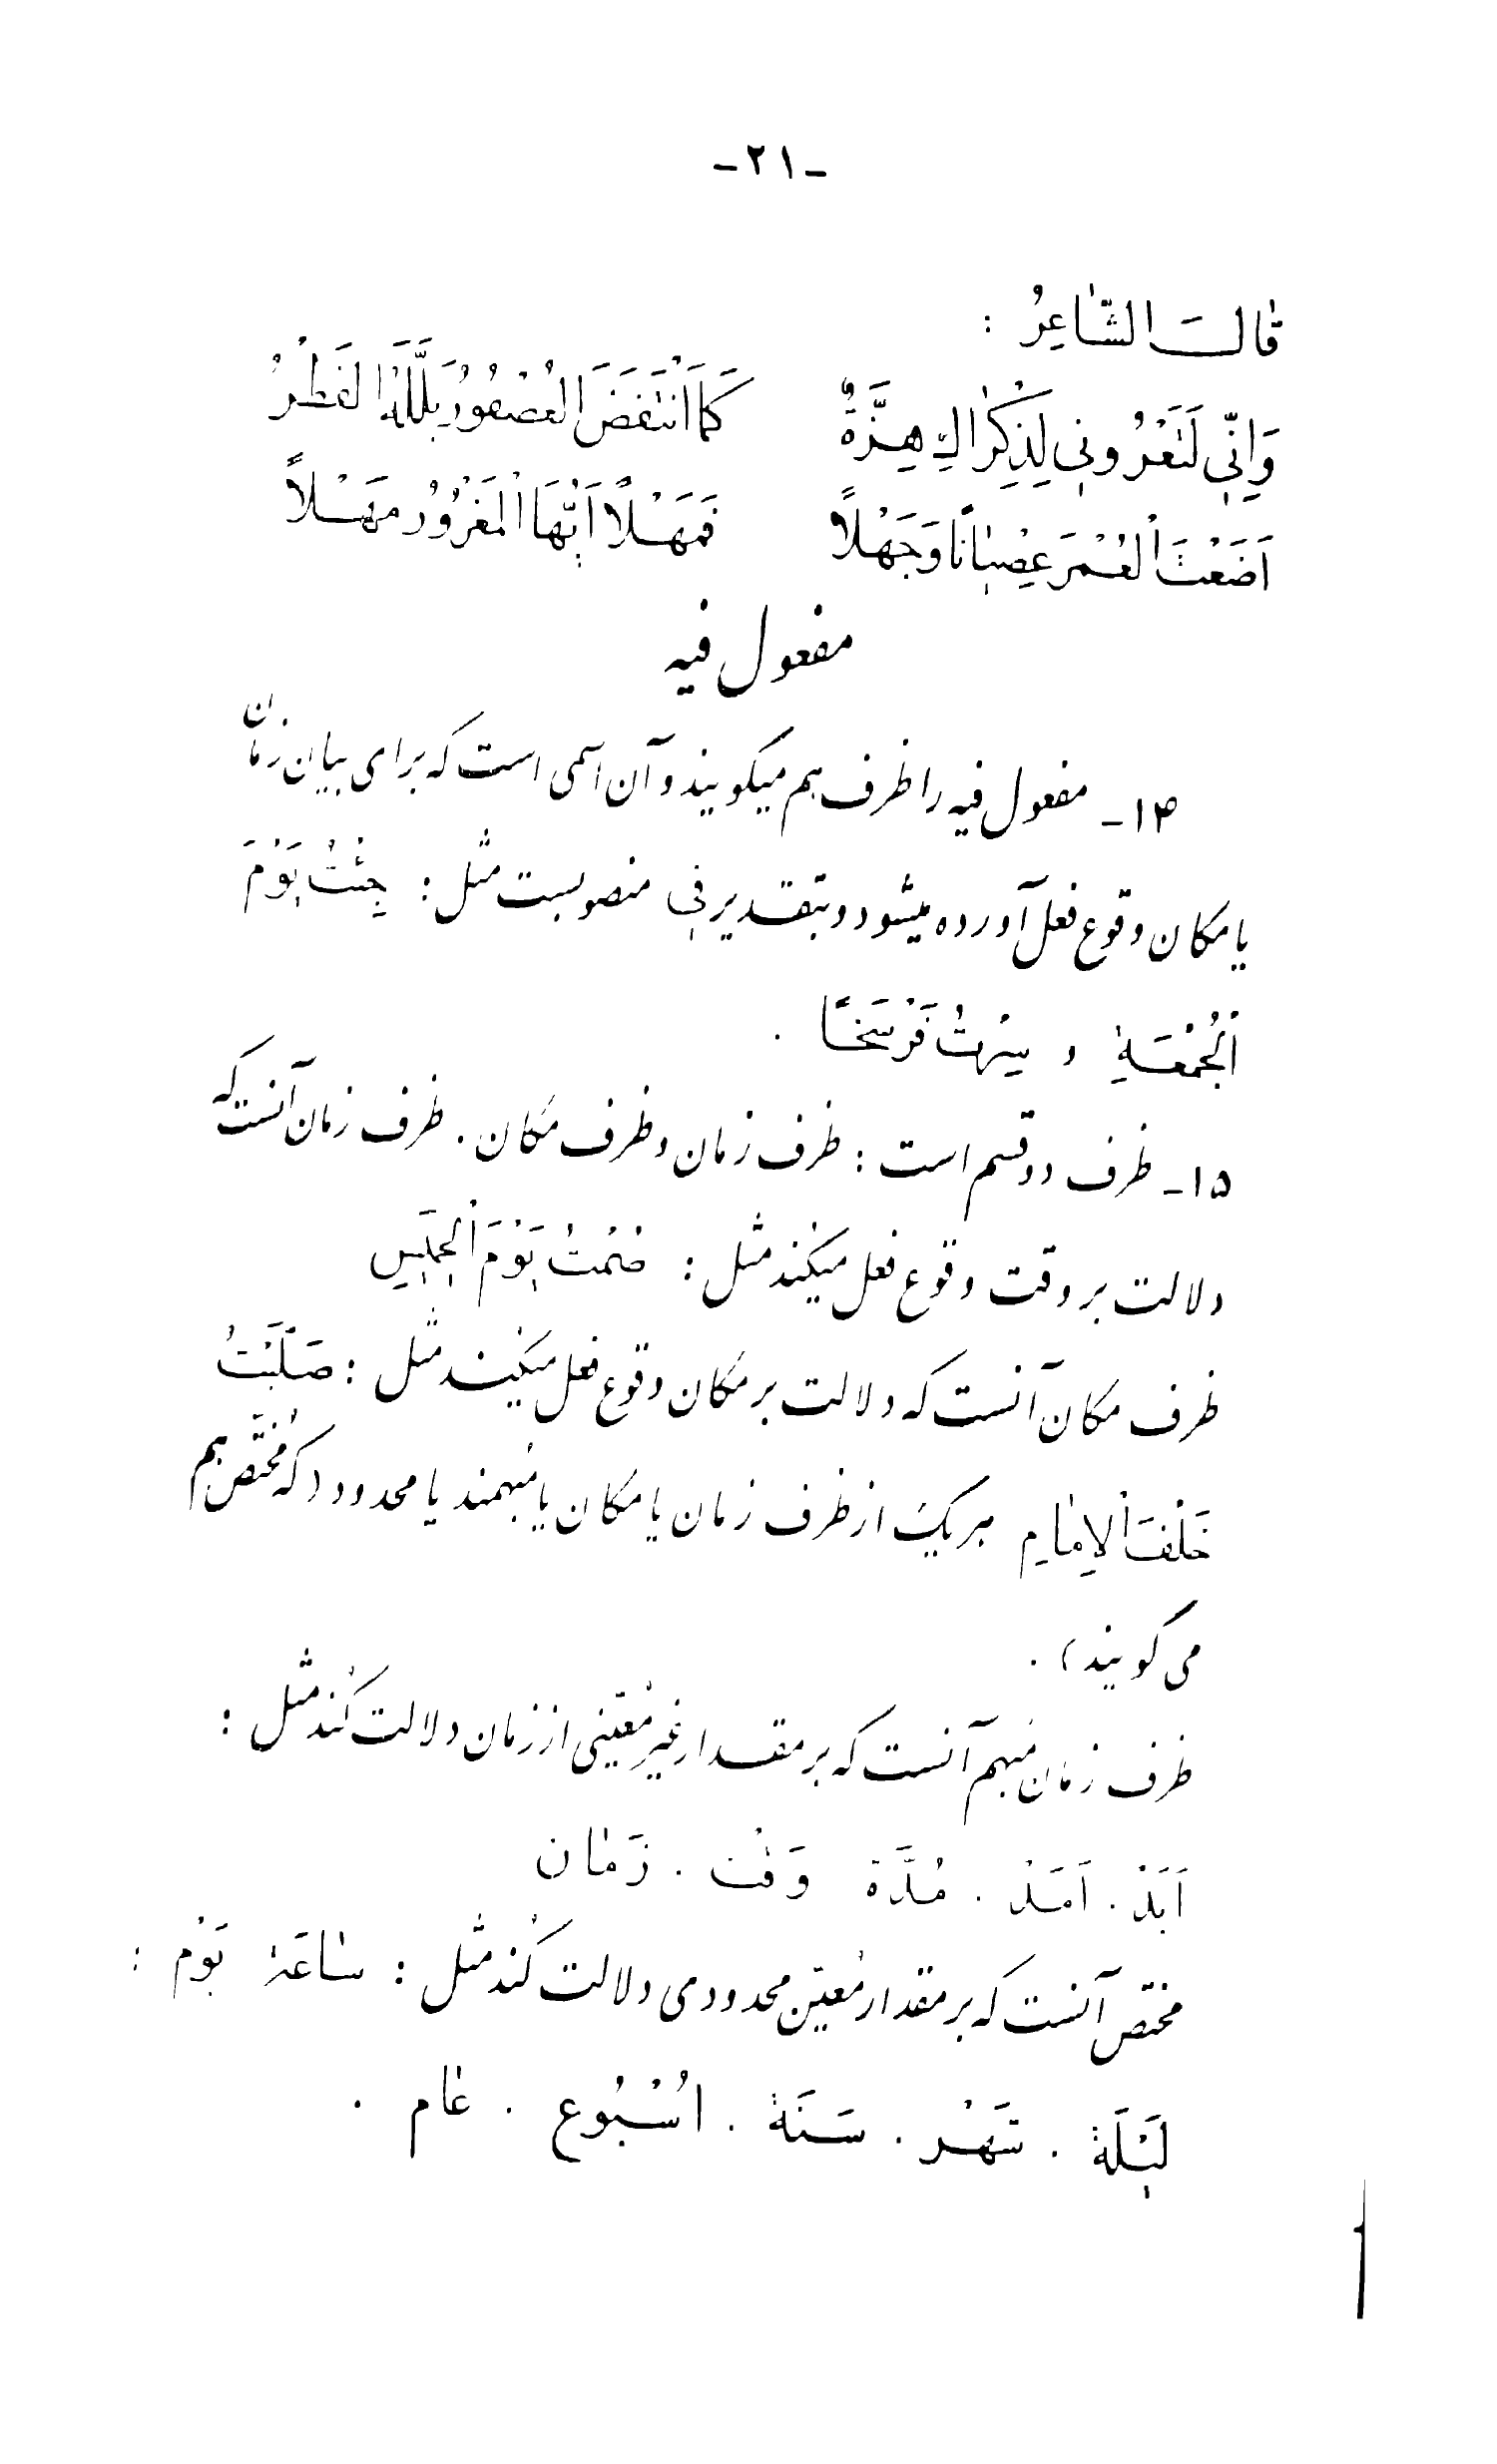 -۲۱-
قٰالَ الشّٰاعِرُ :
وَاِنّی لَتَعْرُونی لِذِکْرٰاكِ هِزَّةٌ   کَمَا انْتَفَضَ الْعُصْفُورُ بَلَّلَهُ الْقَطْرُ
اَضَعْتَ الْعُمْرَ عِصْیٰانًا وَجَهْلاً   فَمَهْلاً اَیُّهَا الْمَغْرُورُ مَهْلاً
مفعول فیه
۱۴- مفعول فیه را ظرف هم میگویند و آن اسمی است که برای بیان زمان
یا مکان وقوع فعل آورده میشود و بتقدیر فی منصوبست مثل : جِئْتُ یَوْمَ
الْجُمْعَةِ و سِرْتُ فَرْسَخًا .
۱۵- ظرف دو قسم است : ظرف زمان و ظرف مکان . ظرف زمان آنست که
دلالت بر وقت وقوع فعل میکند مثل : صُمْتُ یَوْمَ الْخَمیسِ
ظرف مکان آنست که دلالت بر مکان وقوع فعل میکند مثل : صَلَّیْتُ
خَلْفَ الْاِمٰامِ هر یک از ظرف زمان یا مکان یا مُبهمند یا محدود (که مُختَصّ هم
می گویند) .
ظرف زمان مُبهم آنست که بر مقدار غیر مُعیّنی از زمان دلالت کُند مثل :
اَبَدْ . اَمَدْ . مُدَّة وَقْت . زَمٰان
مختصّ آنست که بر مقدار مُعیّن محدودی دلالت کُند مثل : سٰاعَة یَوْم :
لَیْلَة . شَهْر . سَنَة . اُسْبُوع . عٰام .